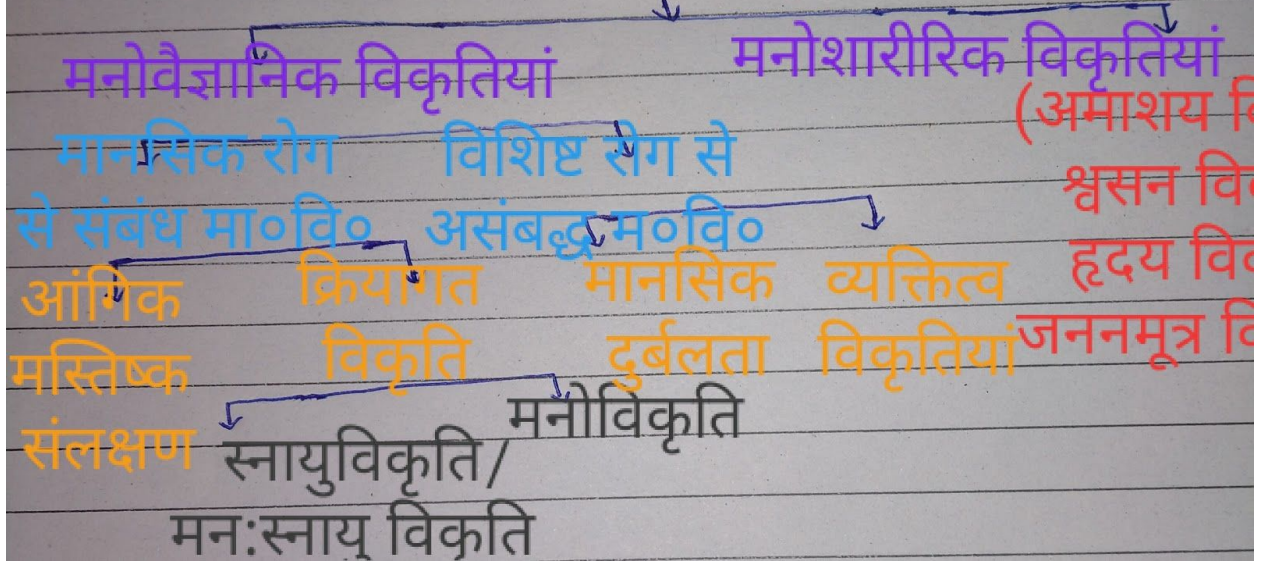 मनोवैज्ञानिक विकृतियां
मनोशारीरिक विकृतियां
(अमाशय
श्वसन
हृदय
जननमूत्र
मानसिक रोग
से संबंध मा०वि०
विशिष्ट रोग से
असंबद्ध म०वि०
आंगिक
मस्तिष्क
संलक्षण
क्रियागत
विकृति
मानसिक
दुर्बलता
व्यक्तित्व
विकृतियां
स्नायुविकृति/
मन:स्नायु विकृति
मनोविकृति